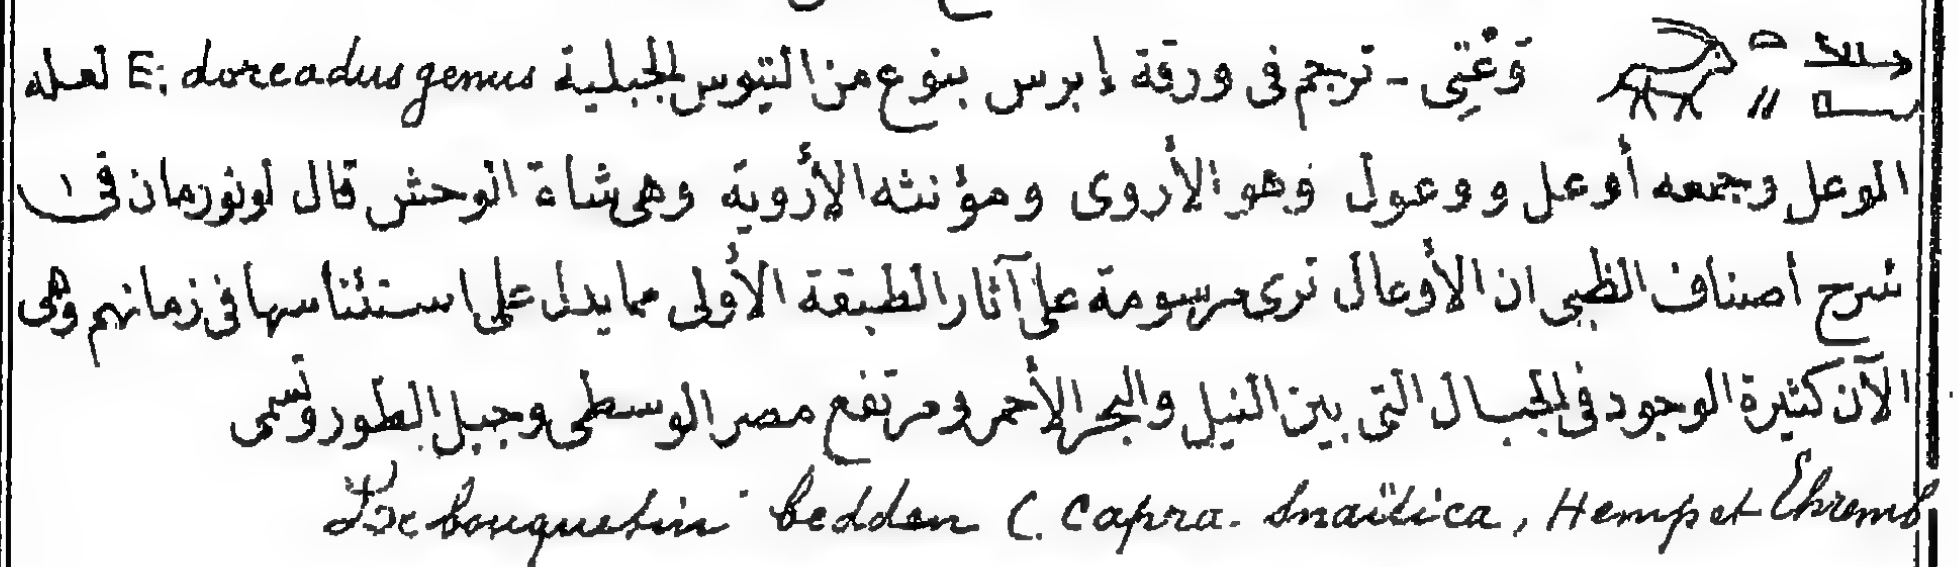 وَعْتِى - ترجم فى ورقة إبرس بنوع من التيوس الجبلية E: doreadus genus لعله
الوعل وجمعه أوعل ووعول وهو الأروى ومؤنثه الأروية وهى شاة الوحش قال لونورمان فى ١
شرح أصناف الظبى ان الأوعال ترى مرسومة على آثار الطبقة الأولى مما يدل على استئناسها فى زمانهم وهى
الآن كثيرة الوجود فى الجبال التى بين النيل والبحر الأحمر ومرتفع مصر الوسطى وجبل الطور وتسمى
bouquetin bedden (. Capra. Snaïtica, Hemp et Ehremb